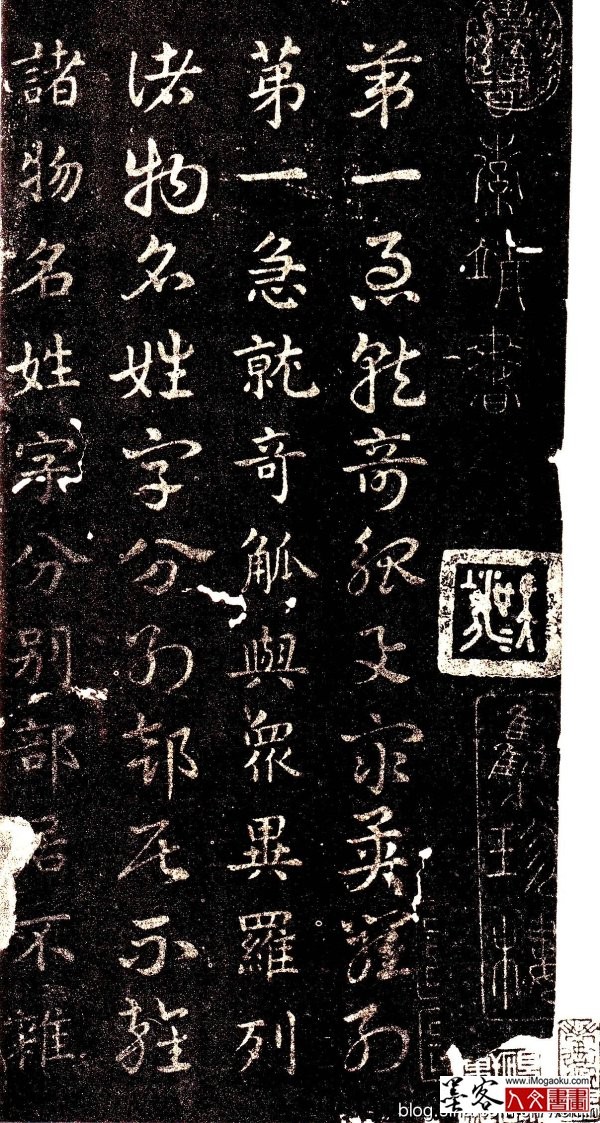 索靖書
第一急就奇觚與衆異羅列
第一急就奇觚與衆異羅列
諸物名姓字分别部居不雜
諸物名姓字分别部居不雜
墨客
www.iMogaoku.com
人文書畫